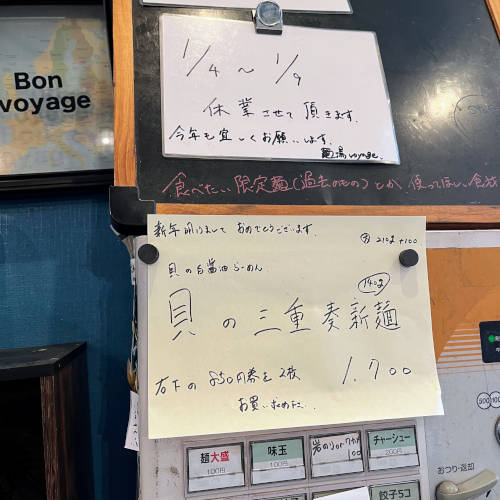 Bon
voyage
1/4 〜 1/9
休業させて頂きます。
今年も宜しくお願いします。
麺湯voyage.
食べたい限定麺(過去のもの)とか、使ってほしい食材
新年明けまして おめでとうございます。
大 210g +100
貝の白醤油らーめん
140g
貝の三重奏新麺
右下の850円券を2枚 1.700
お買い求め下さい..
麺大盛
100円
味玉
100円
岩のり or
100
チャーシュー
200円
餃子5コ
おつり・返却
500
100